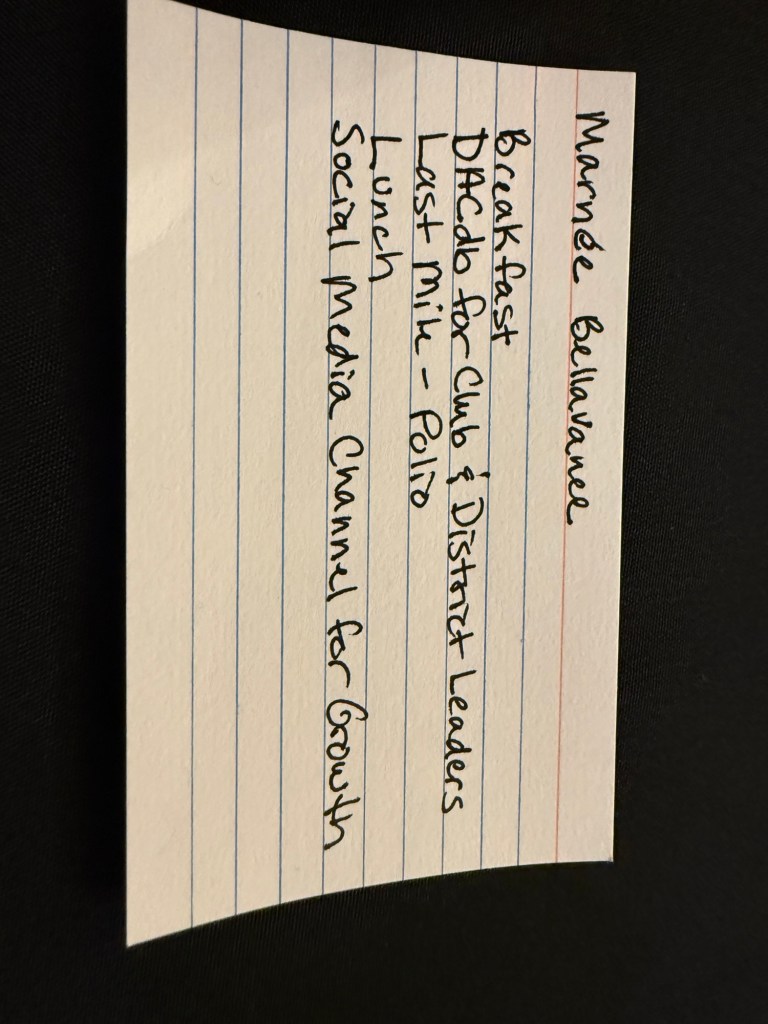 Marnée Bellavance
Breakfast
DACdb for Club & District Leaders
Last Mile - Polio
Lunch
Social Media Channel for Growth